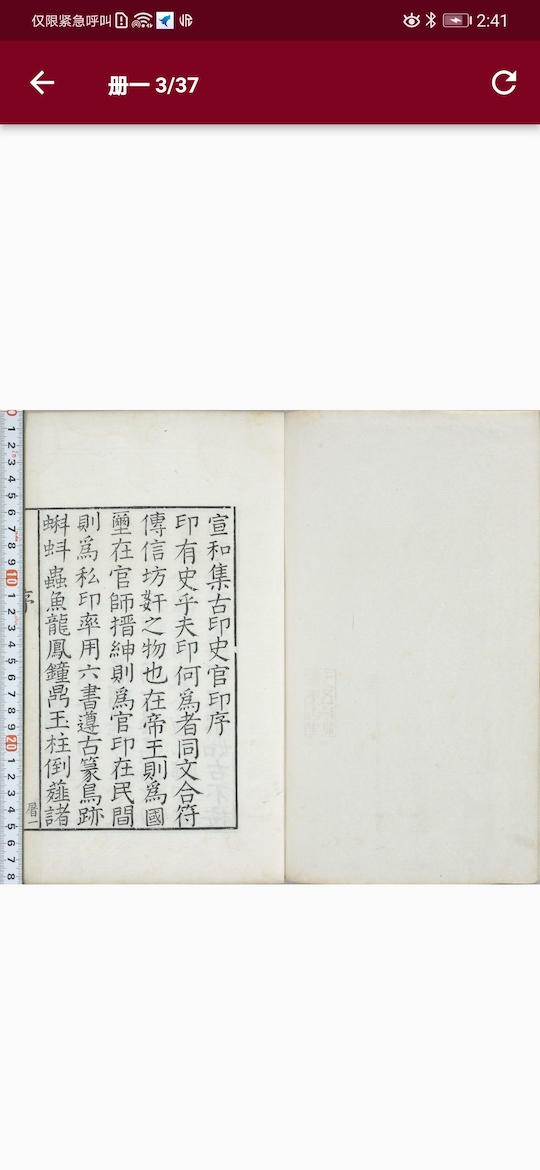 仅限紧急呼叫
2:41
册一 3/37
宣和集古印史官印序
印有史乎夫印何爲者同文合符
傳信坊奸之物也在帝王則爲國
璽在官師搢紳則爲官印在民間
則爲私印率用六書遵古篆鳥跡
蝌蚪蟲魚龍鳳鐘鼎玉柱倒薤諸
0 1 2 3 4 5 6 7 8 9 10 1 2 3 4 5 6 7 8 9 20 1 2 3 4 5 6 7 8